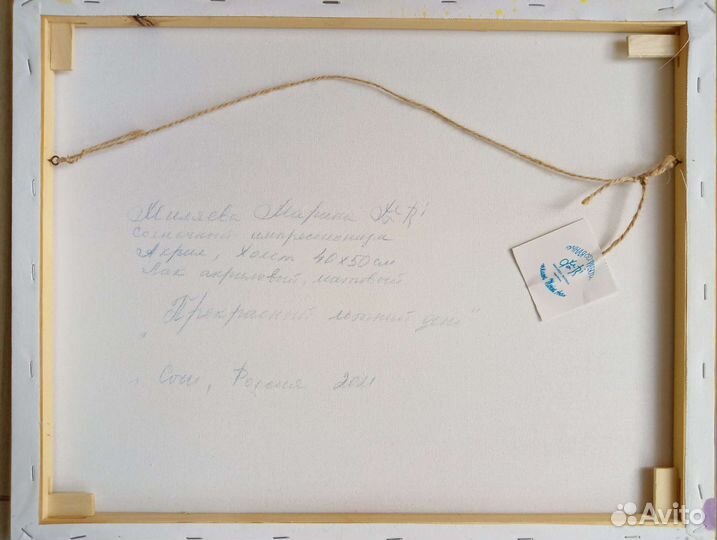 Миляева Марина
солнечный импрессионизм
Акрил, холст 40х50 см
Лак акриловый, матовый
"Прекрасный летний день"
г. Сочи, Россия 2021
Avito